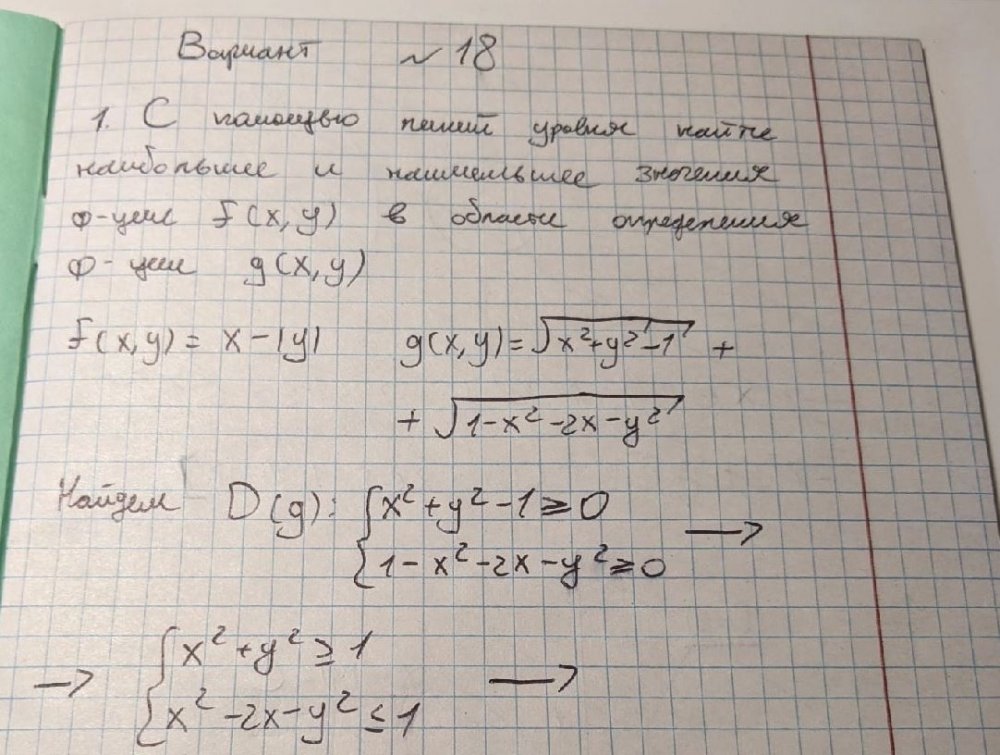 Вариант № 18
1. С помощью линий уровня найти
наибольшее и наименьшее значения
ф-ции f(x,y) в области определения
ф-ции g(x,y)
f(x,y) = x-|y| g(x,y) = √(x²+y²-1) +
+ √(1-x²-2x-y²)
Найдем D(g): { x²+y²-1 ≥ 0 →
{ 1-x²-2x-y² ≥ 0
→ { x²+y² ≥ 1 →
{ x²-2x-y² ≤ 1